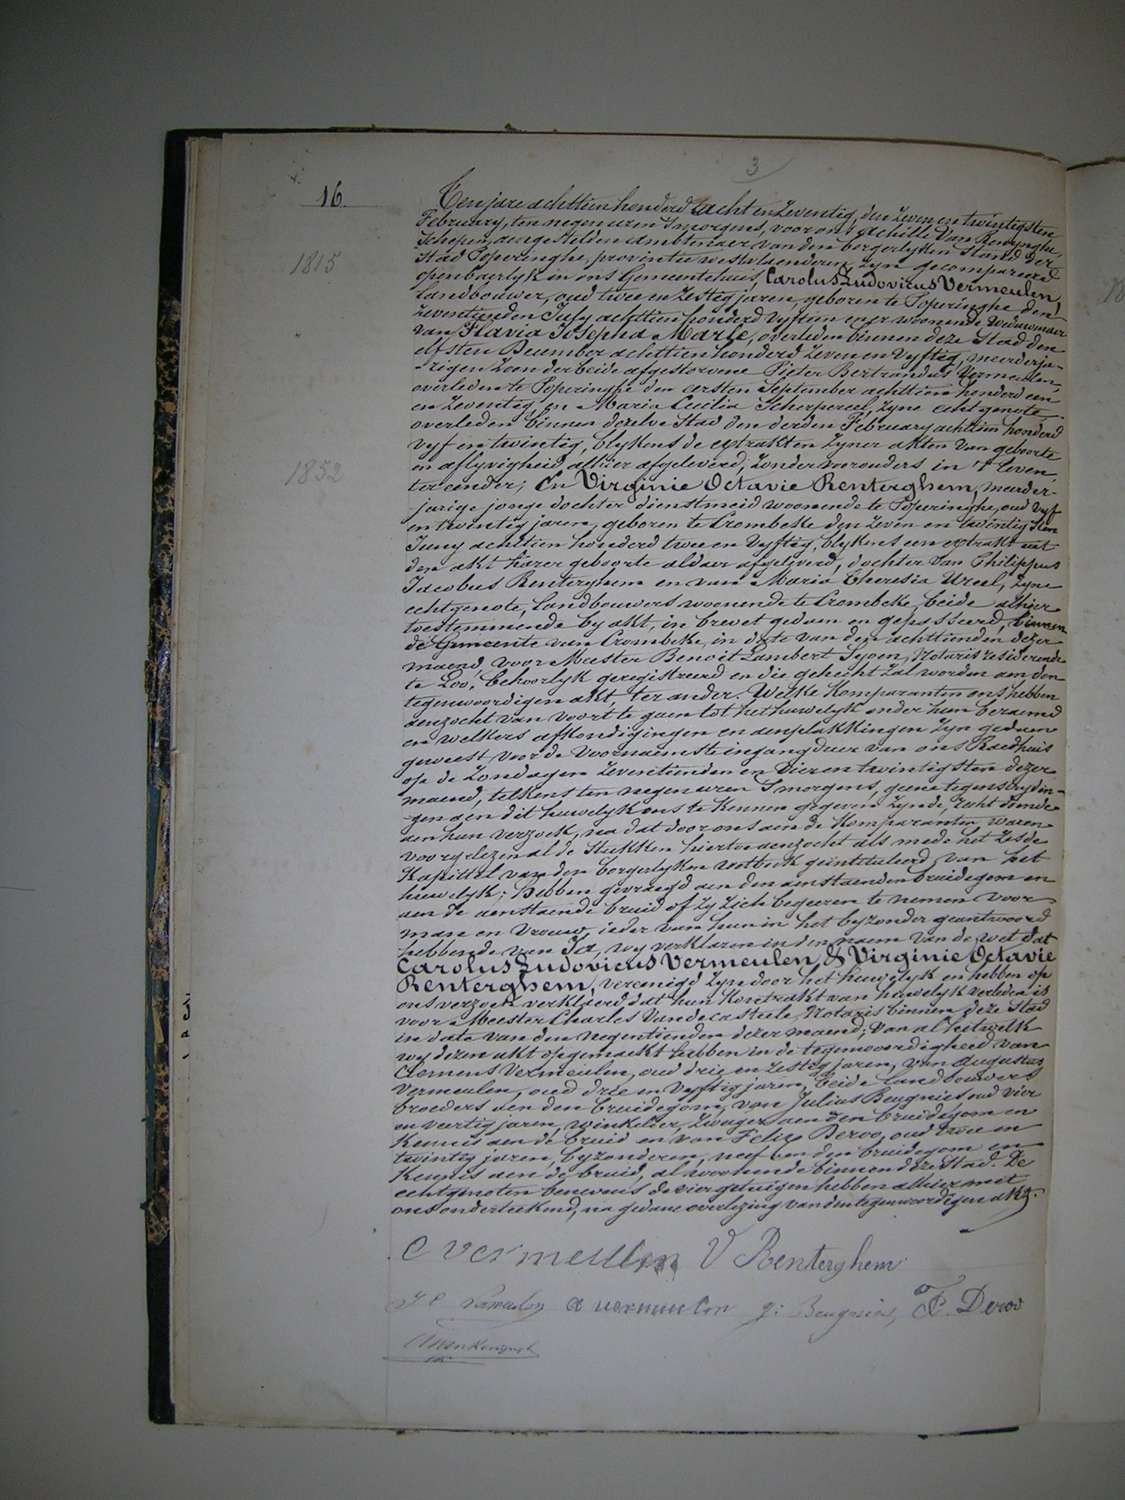 3
16
Ten jare achttien honderd acht en zeventig, den zeven en twintigsten
February, ten negen uren 's morgens, voor ons Achille Van Renynghe,
Schepen, aengestelden ambtenaer van den borgerlyken stand der
1815
Stad Poperinghe, provintie westvlaenderen, zyn gecompareerd
openbaerlyk in ons Gemeentehuis, Carolus Ludovicus Vermeulen,
landbouwer, oud twee en zestig jaren, geboren te Poperinghe den
zeventienden July achttien honderd vyftien en er woonende, weduwnaer
van Flavia Josepha Marle, overleden binnen deze Stad den
elfsten December achttien honderd zeven en vyftig, meerderja-
rigen zoon der beide afgestorvene Pieter Bertrandus Vermeulen,
overleden te Poperinghe den eersten September achttien honderd een
en zeventig en Maria Cecilia Scherpereel, zyne echtgenote,
overleden binnen dezelve Stad den derden February achttien honderd
vyf en twintig, blykens de extrakten zyner akten van geboorte
1852
en aflyvigheid, alhier afgeleverd, zonder voorouders in 't leven,
ter eender; En Virginie Octavie Renterghem, meerder-
jarige jonge dochter dienstmeid woonende te Poperinghe, oud vyf
en twintig jaren, geboren te Crombeke den zeven en twintigsten
Juny achttien honderd twee en vyftig, blykens een extrakt uit
den akt harer geboorte aldaer afgeleverd, dochter van Philippus
Jacobus Renterghem en van Maria Theresia Ureel, zyne
echtgenote, landbouwers woonende te Crombeke, beide alhier
toestemmende by akt, in brevet gedaen en gepasseerd, binnen
de Gemeente van Crombeke, in date van den achttienden dezer
maend, voor Meester Benoit Lambert Syoen, Notaris residerende
te Loo, behoorlyk geregistreerd en die gehecht zal worden aen den
tegenwoordigen akt, ter ander. Welke komparanten ons hebben
aenzocht van voort te gaen tot het huwelyk onder hun beraemd
en welkers afkondigingen en aenplakkingen zyn gedaen
geweest voor de voornaemste ingangdeur van ons Raedhuis
op de zondagen zeventienden en vier en twintigsten dezer
maend, telkens ten negen uren 's morgens, geene tegenstrydin-
gen aen dit huwelyk ons te kennen gegeven zynde, recht doende
aen hun verzoek, na dat door ons aen de komparanten waren
voorgelezen al de stukken hiertoe aenzocht als mede het zesde
kapittel van den borgerlyken wetboek geintituleerd van het
huwelyk; hebben gevraegd aen den aenstaenden bruidegom en
aen de aenstaende bruid of zy zich begeeren te nemen voor
man en vrouw, ieder van hun in het byzonder geantwoord
hebbende van Ja, wy verklaren in den naem van de wet dat
Carolus Ludovicus Vermeulen, & Virginie Octavie
Renterghem, vereenigd zyn door het huwelyk en hebben op
ons verzoek verklaerd dat hun kontrakt van huwelyk verleden is
voor Meester Charles Vandecasteele, Notaris binnen deze Stad
in date van den negentienden dezer maend; van al hetwelk
wy dezen akt opgemaekt hebben in de tegenwoordigheid van
Clemens Vermeulen, oud drie en zestig jaren, van Augustus
Vermeulen, oud drie en vyftig jaren, beide landbouwers
broeders aen den bruidegom, van Julius Beugnies oud vier
en veertig jaren, winkelier, zwager aen den bruidegom en
kennis aen de bruid en van Felix Deroo, oud twee en
twintig jaren, byzonderen, neef aen den bruidegom en
kennis aen de bruid, al woonende binnen deze Stad. De
echtgenoten benevens de vier getuigen hebben alhier met
ons onderteekend, na gedane voorlezing van den tegenwoordigen akt.
C Vermeulen V Renterghem
Vermeulen A Vermeulen J: Beugnies, F. Deroo